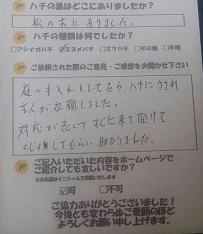 ハチの巣はどこにありましたか?
松の木にありました。
ハチの種類は何でしたか?
□アシナガバチ ☑スズメバチ □ミツバチ □その他 □不明
ご依頼された際のご意見・ご感想をお聞かせ下さい
庭の手入れをしてたら、ハチにさされ
主人が依頼しました。
対応が早くてすぐに来て頂けて
くじょしてもらい助かりました。
ご記入いただいた内容をホームページで
ご紹介しても宜しいですか?
☑可 □不可
ご協力ありがとうございました!
今後とも変わらぬご愛顧のほど
よろしくお願い申し上げます。